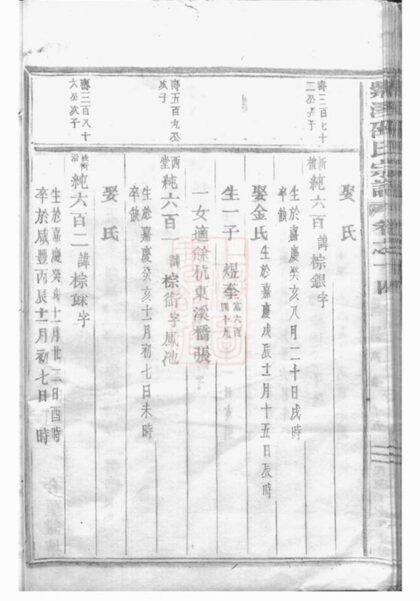 氏宗譜 卷之十四
壽三百七十
二丞子
壽五百九丞
丞子
壽三百八十
六丞丞子
娶 氏
純六百 諱棕銀 字
生於嘉慶癸亥八月二十日戌時
卒缺
娶金氏 生於嘉慶戊辰十二月十五日辰時
生一子 煜奎 富六百四十九
一女適餘杭東溪橋張
西堂 純六百一 諱棕衙 字鳳池
生於嘉慶癸亥十二月初七日未時
卒缺
娶 氏
純六百二 諱棕 字
生於嘉慶癸亥十一月廿二日酉時
卒於咸豐丙辰十一月初七日 時